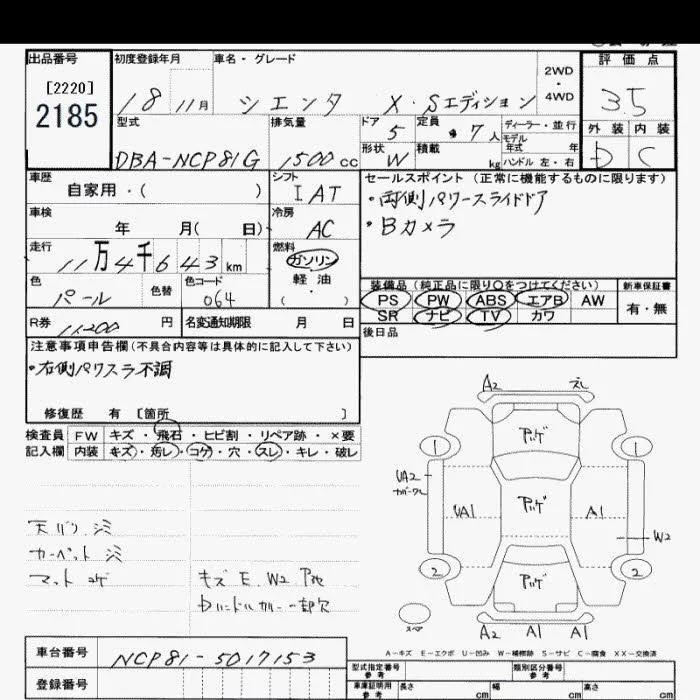 出品番号
[2220]
2185
初度登録年月 車名・グレード
18 11月 シエンタ X・Sエディション
2WD
・
4WD
評価点
3.5
外装 内装
D C
型式 排気量 ドア 定員 ディーラー・並行
DBA-NCP81G 1500cc 5 7人 モデル年式 年
形状 積載
W kg ハンドル 左・右
車歴
自家用・( )
シフト
IAT
セールスポイント (正常に機能するものに限ります)
・両側パワースライドドア
・Bカメラ
車検
年 月( 日)
冷房
AC
走行
11万4千643km
燃料
ガソリン
軽油
・
( )
色
パール
色替
色コード
064
装備品 (純正品に限り○をつけてください) 新車保証書
PS PW ABS エアB AW 有・無
SR ナビ TV カワ
R券 11200 円 名変通知期限 月 日
後日品
注意事項申告欄 (不具合内容等は具体的に記入して下さい)
・右側パワスラ不調
修復歴 有 [箇所 ]
検査員 FW キズ・飛石・ヒビ割・リペア跡・×要
記入欄 内装 キズ・汚レ・コゲ・穴・スレ・キレ・破レ
天バリ シミ
カーペット シミ
マット コゲ
キズ E. W2
ハンドルカバー一部欠
A2 スレ
1 1
UA2
UA1 A1
W2
2 2
スペア
A2 A1 A1
A-キズ E-エクボ U-凹み W-補修跡 S-サビ C-腐食 XX-交換済
車台番号 NCP81-5017153
登録番号
型式指定番号 参考 類別区分番号 参考
車庫証明用 参考 長さ cm 幅 cm 高さ cm